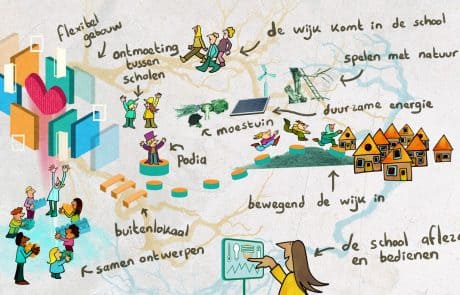 flexibel
gebouw
ontmoeting
tussen
scholen
de wijk komt in de school
spelen met natuur
duurzame energie
moestuin
Podia
bewegend de wijk in
buitenlokaal
samen ontwerpen
de school afleze
en bedienen